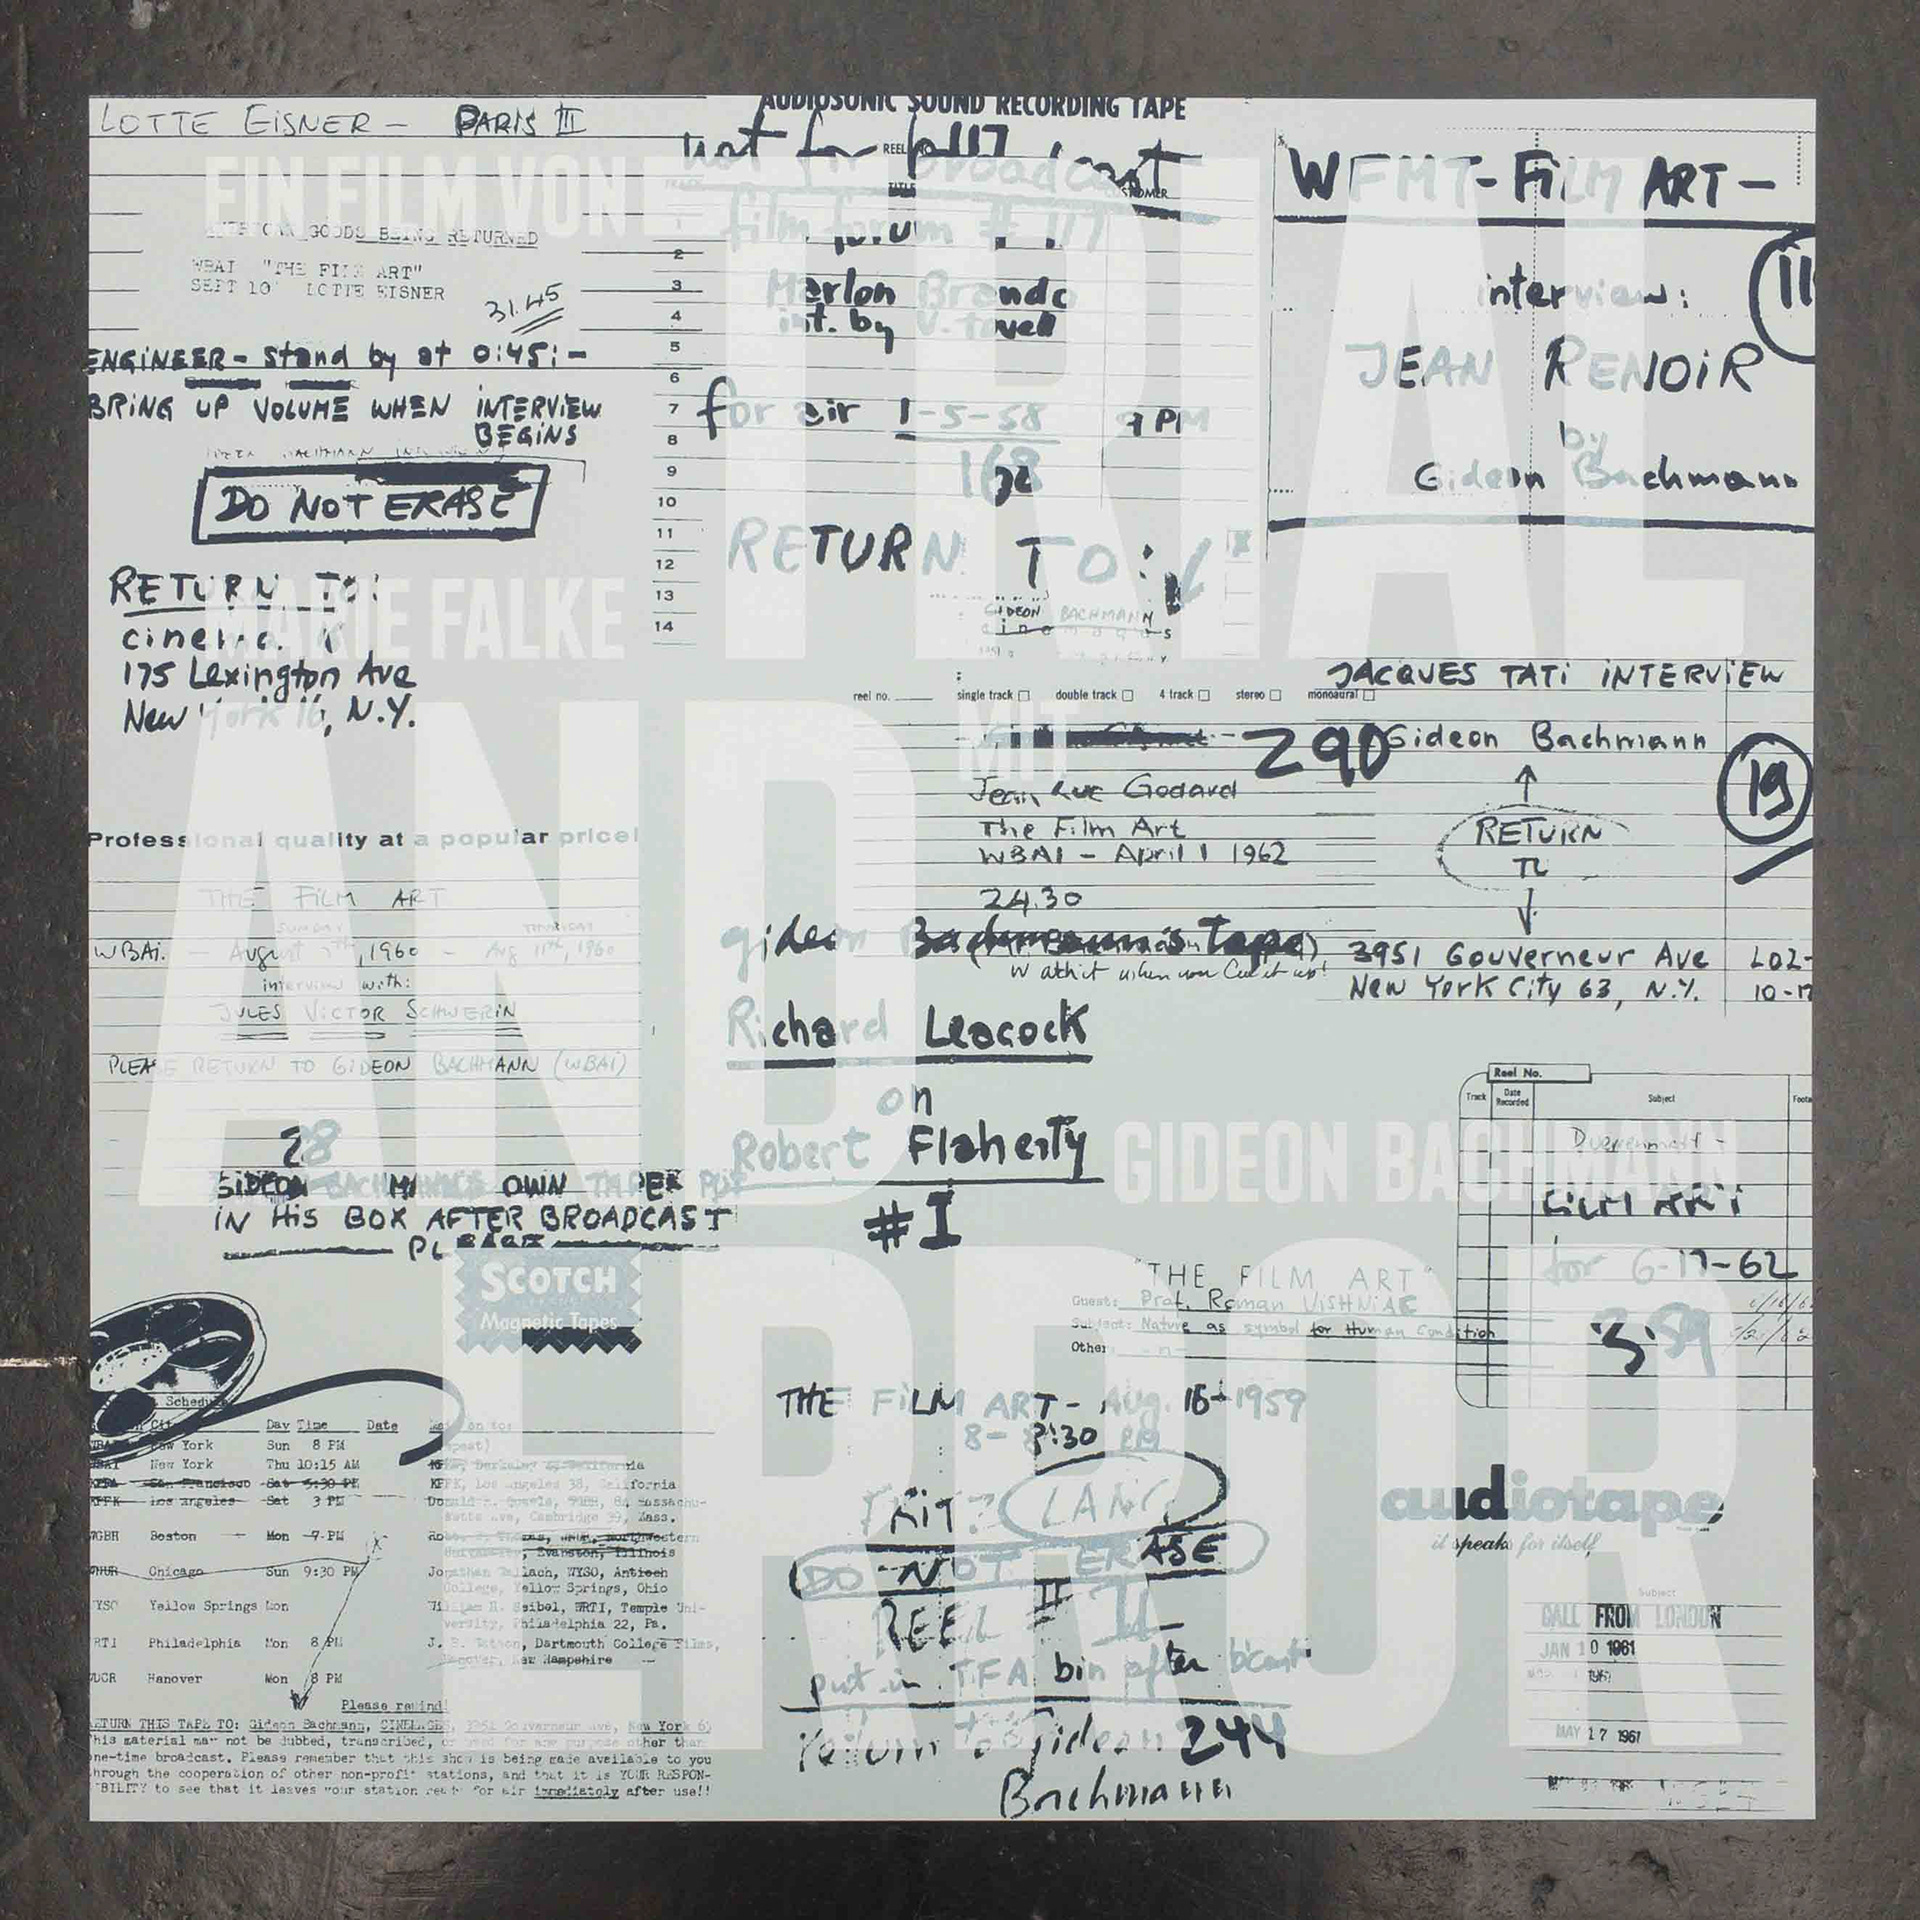 LOTTE EISNER – PARIS III
EIN FILM VON
GOODS BEING RETURNED
WBAI "THE FILM ART"
SEPT 10 LOTTE EISNER
31.45
ENGINEER – stand by at 0:45: –
BRING UP VOLUME WHEN INTERVIEW
BEGINS
DO NOT ERASE
RETURN TO:
MARIE FALKE
175 Lexington Ave
New York 16, N.Y.
AUDIOSONIC SOUND RECORDING TAPE
not for broadcast
film forum # 117
Marlon Brando
int. by V. Tovell
for air 1-5-58 9 PM
168
RETURN TO:
GIDEON BACHMANN
1
2
3
4
5
6
7
8
9
10
11
12
13
14
TRIAL
WFMT – FILM ART –
interview: 11
JEAN RENOIR
by
Gideon Bachmann
reel no. single track double track 4 track stereo monoaural
MIT
290
Jean Luc Godard
The Film Art
WBAI – April 1 1962
24.30
gideon Bachmann's Tape
JACQUES TATI INTERVIEW
Gideon Bachmann
19
RETURN
TO
3951 Gouverneur Ave
New York City 63, N.Y.
LO2-
AND
Professional quality at a popular price!
THE FILM ART
SUNDAY THURSDAY
WBAI. – August 7th, 1960 – Aug 11th, 1960
interview with:
JULES VICTOR SCHWERIN
PLEASE RETURN TO GIDEON BACHMANN (WBAI)
28
GIDEON BACHMANN'S OWN TAPE PUT
IN HIS BOX AFTER BROADCAST
PLEASE
Richard Leacock
on
Robert Flaherty
#I
GIDEON BACHMANN
Reel No.
Track Date Recorded Subject
FILM ART
for 6-17-62
359
ERROR
SCOTCH
Magnetic Tapes
"THE FILM ART"
Guest: Prof. Roman VISHNIAC
Subject: Nature as symbol for Human Condition
Other:
THE FILM ART – Aug. 16 – 1959
8 – 8:30 PM
FRITZ LANG
DO NOT ERASE
REEL II
put in TFA bin after b'cast
Return to Gideon 244
Bachmann
audiotape
it speaks for itself
Subject
CALL FROM LONDON
JAN 10 1961
MAY 17 1961
Schedule
City Day Time Date
New York Sun 8 PM
New York Thu 10:15 AM
San Francisco Sat 5:30 PM
Los Angeles Sat 3 PM
WGBH Boston Mon 7 PM
Chicago Sun 9:30 PM
WYSO Yellow Springs Mon
WRTI Philadelphia Mon 8 PM
Hanover Mon 8 PM
KPFK, Los Angeles 38, California
Cambridge 39, Mass.
Evanston, Illinois
WYSO, Antioch
College, Yellow Springs, Ohio
Seibel, WRTI, Temple Uni-
versity, Philadelphia 22, Pa.
Dartmouth College Films,
Hanover, New Hampshire
Please remind
RETURN THIS TAPE TO: Gideon Bachmann, CINEMAGES, 3951 Gouverneur Ave, New York 63
This material may not be dubbed, transcribed, or used for any purpose other than
one-time broadcast. Please remember that this show is being made available to you
through the cooperation of other non-profit stations, and that it is YOUR RESPON-
SIBILITY to see that it leaves your station ready for air immediately after use!!